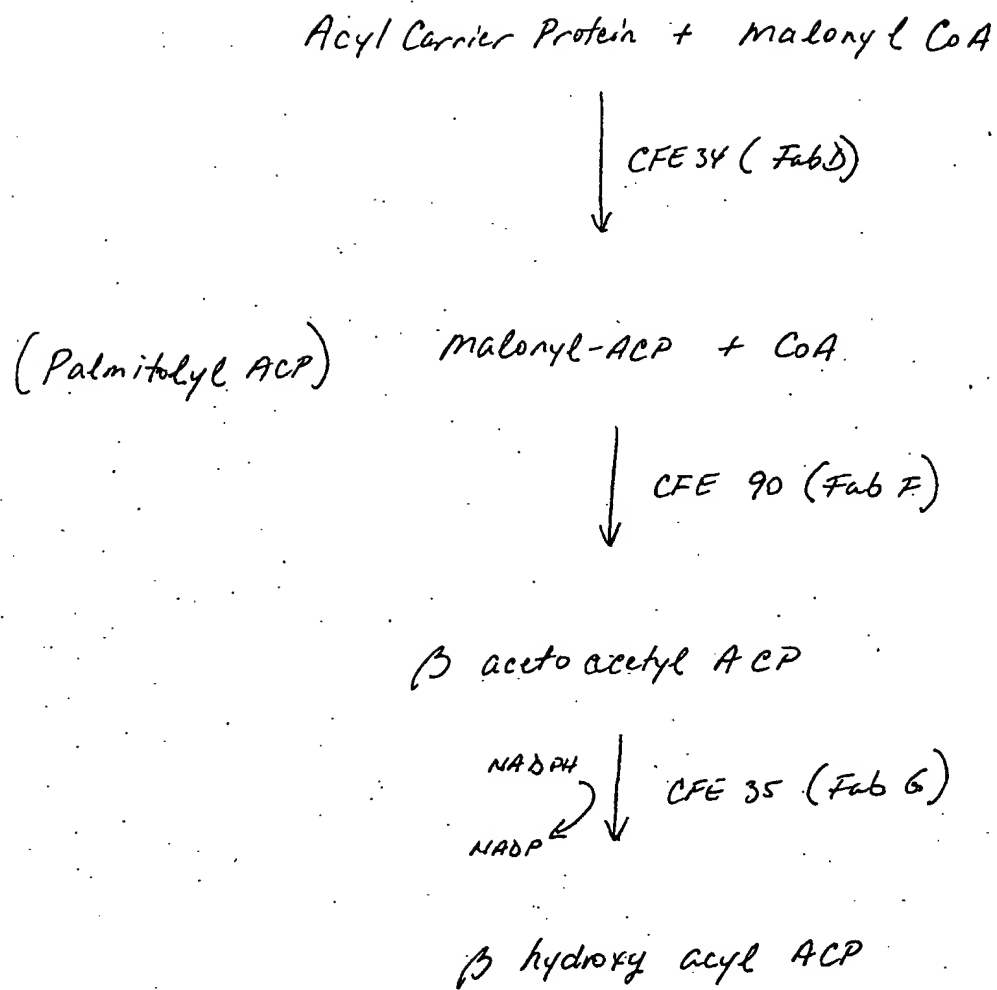 Acyl Carrier Protein + Malonyl CoA
CFE 34 (FabD)
(Palmitolyl ACP) Malonyl-ACP + CoA
CFE 90 (Fab F)
β aceto acetyl ACP
NADPH
CFE 35 (Fab G)
NADP
β hydroxy acyl ACP